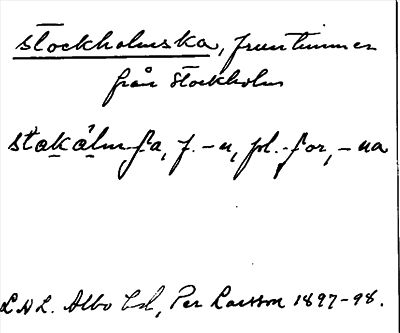 stockholmska, fruntimmer
från Stockholm
f. -n, pl. -for, -na
L.A.L. Albo hd, Per Larsson 1897-98.